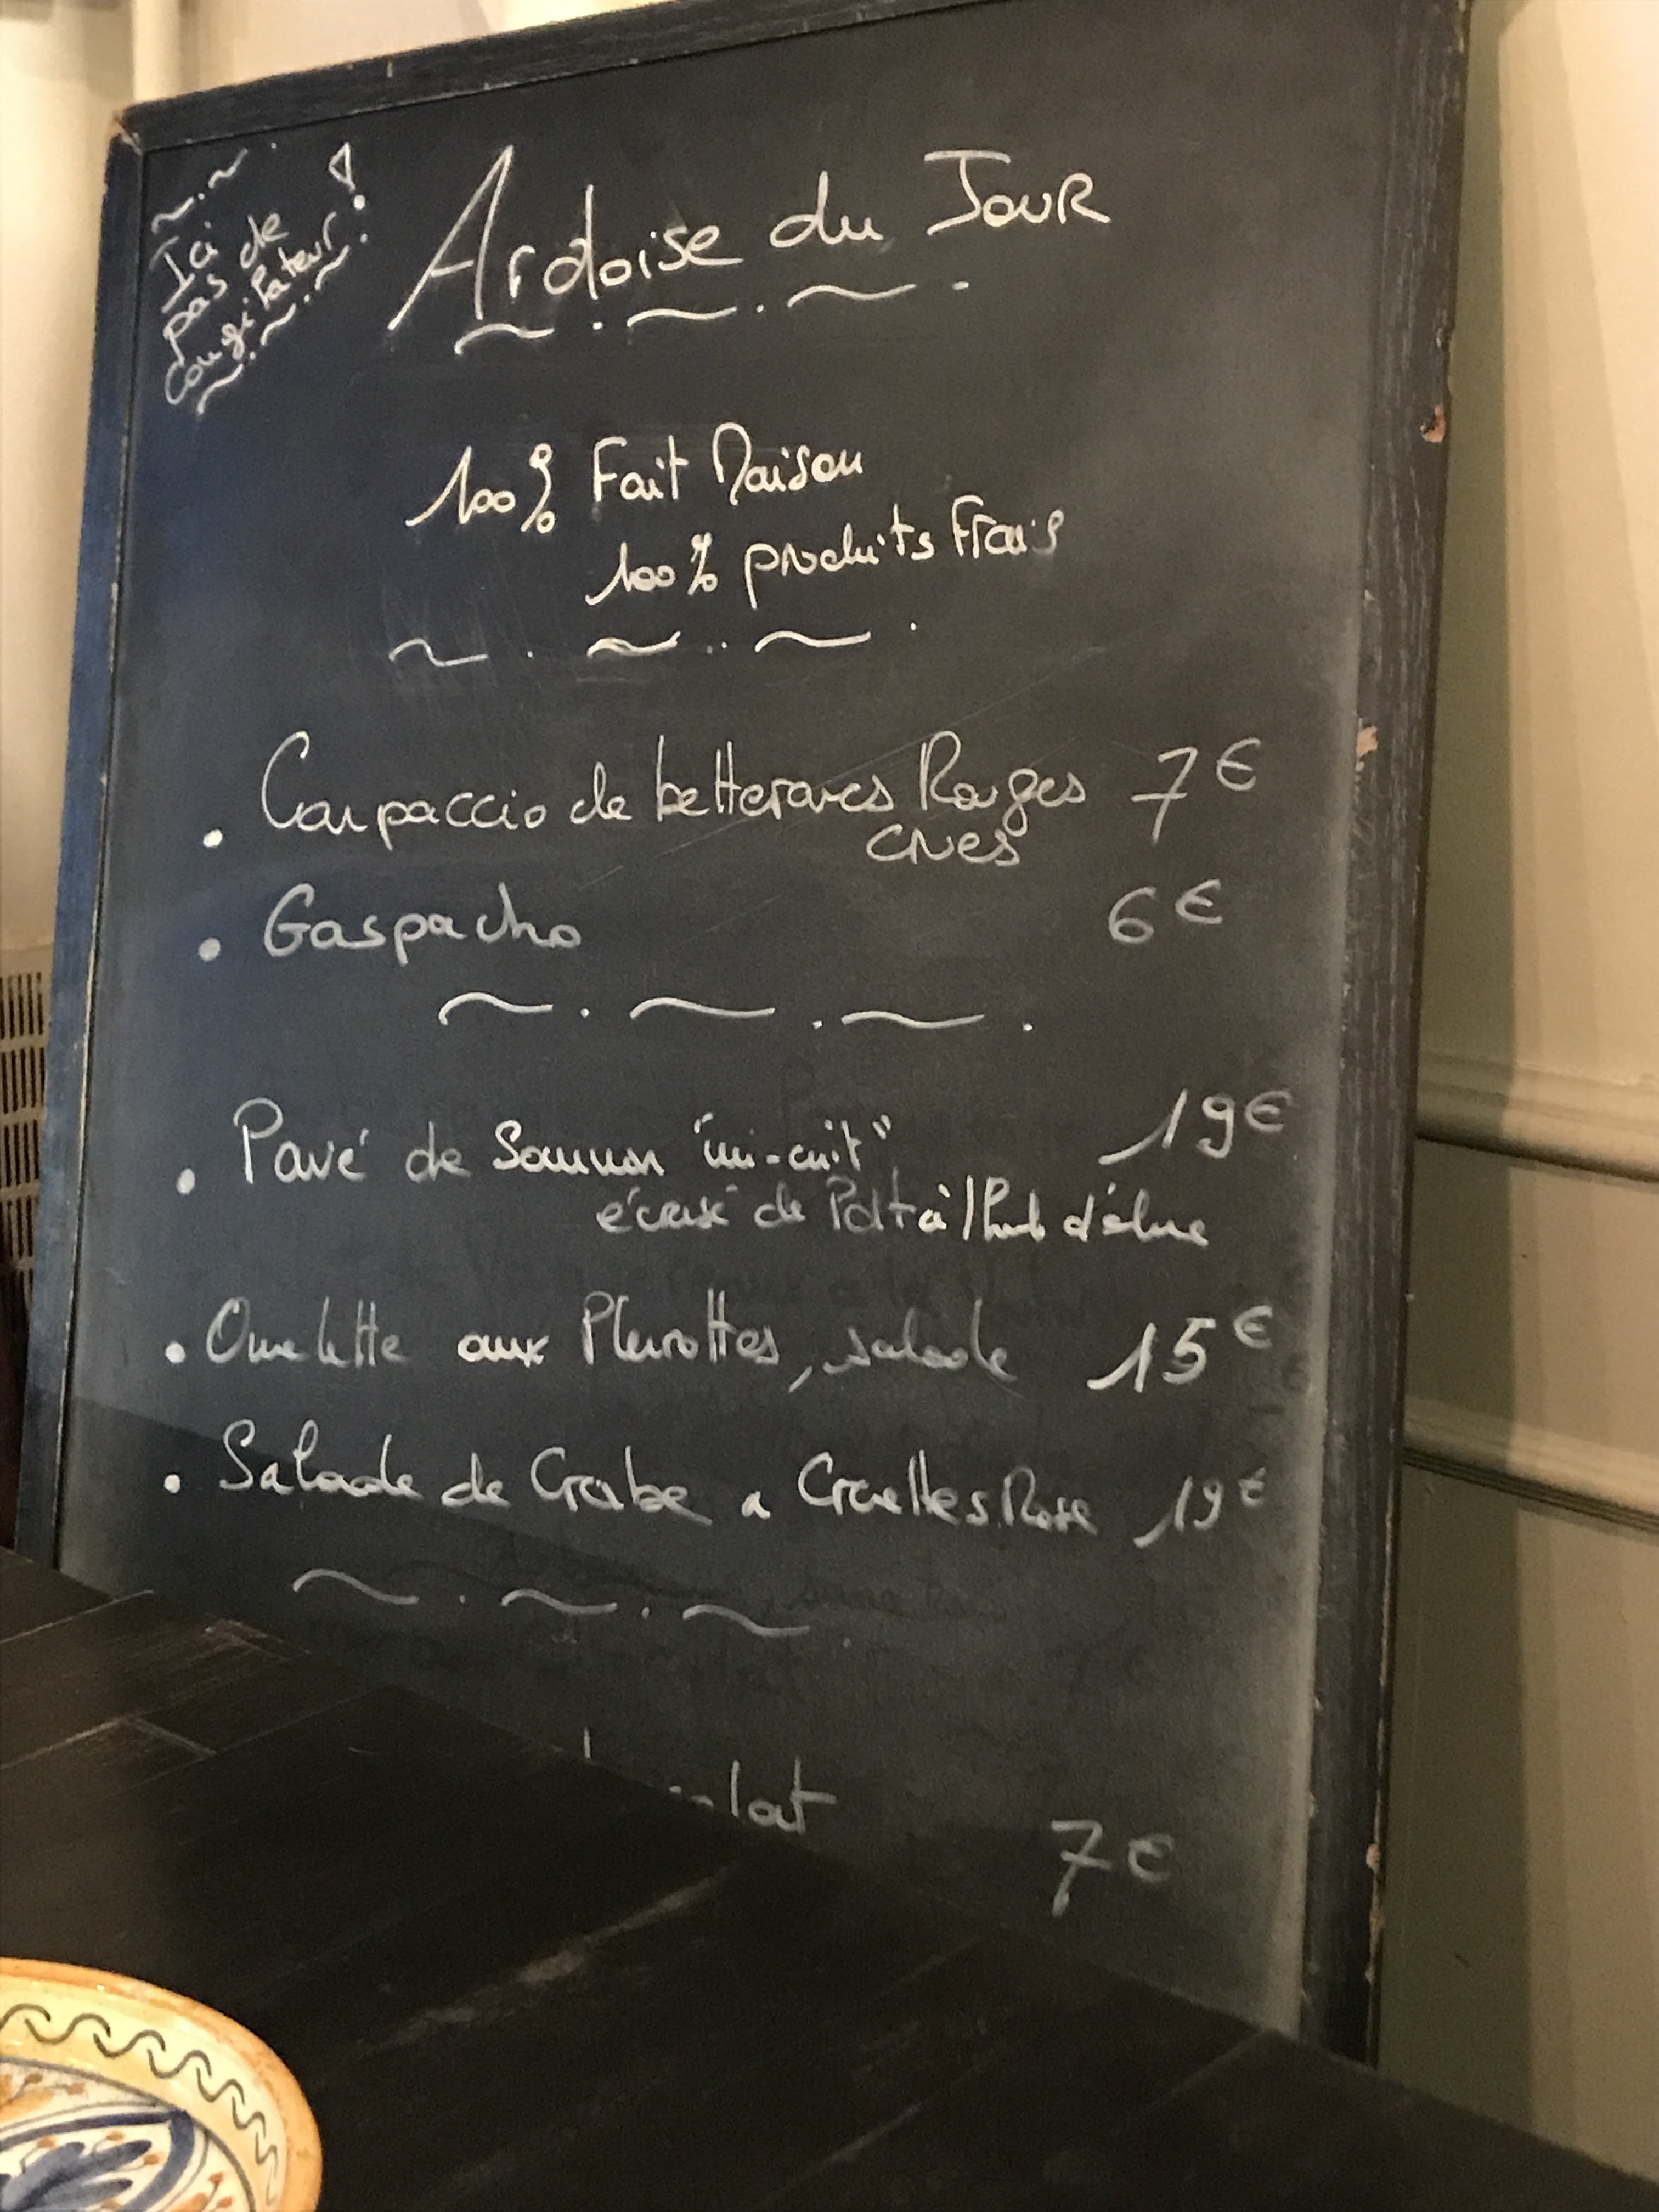 Ici
pas de
congélateur!
Ardoise du JOUR
100% Fait Maison
100% produits Frais
. Carpaccio de betteraves Rouges 7€
crues
. Gaspacho 6€
. Pavé de Saumon "mi-cuit" 19€
écrasé de
. Omelette aux Pleurottes, salade 15€
. Salade de Crabe & Crevettes Rose 19€
7€